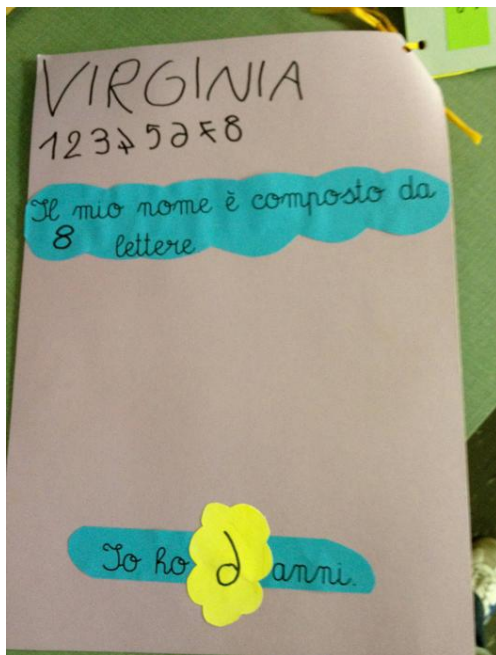 VIRGINIA
12345678
Il mio nome è composto da
8 lettere
Io ho 6 anni.